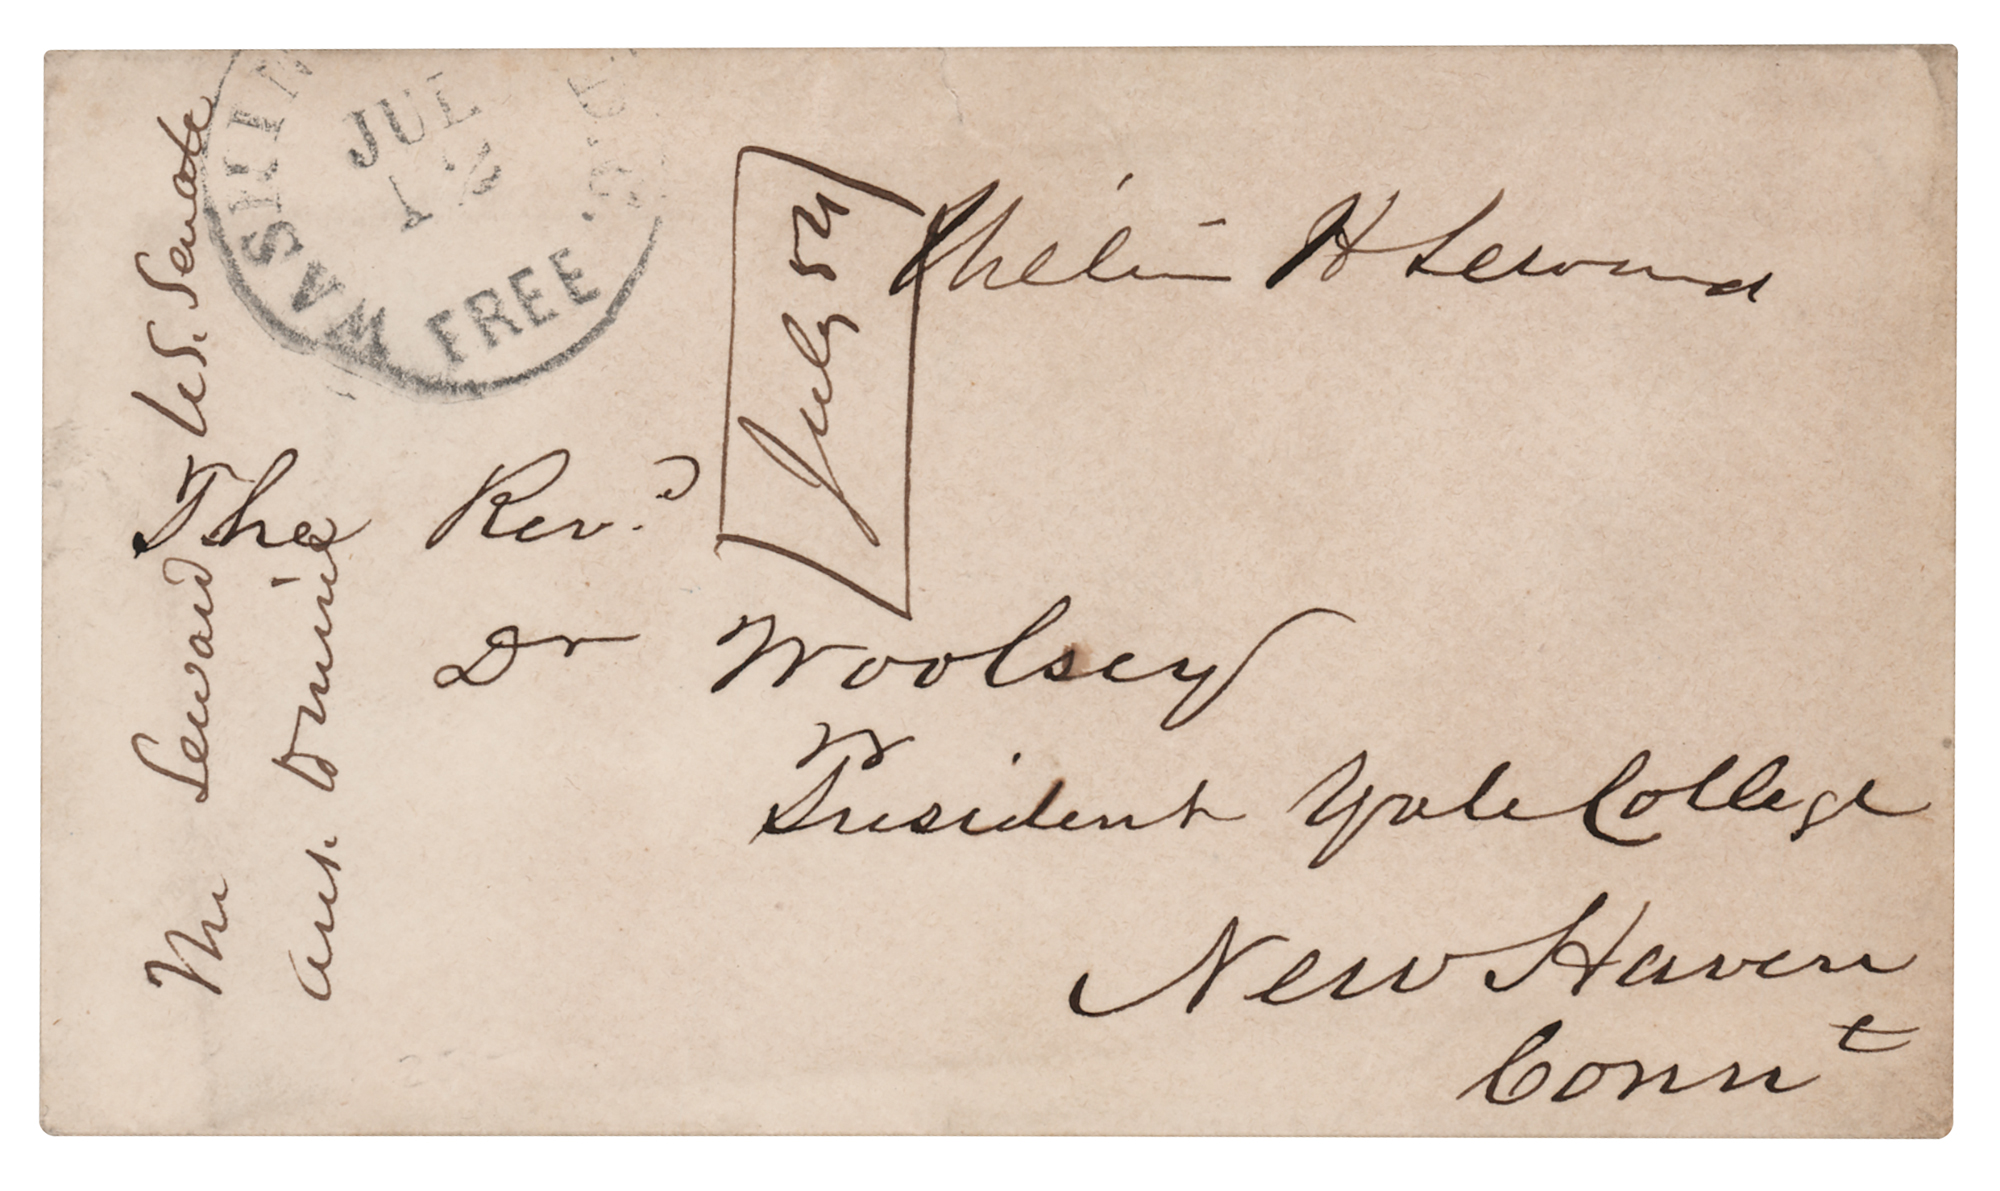 WASHIN
JUL
12
FREE
July 54
William H Seward
The Revd
Dr Woolsey
President Yale College
New Haven
Connt
Mr Seward U.S. Senate